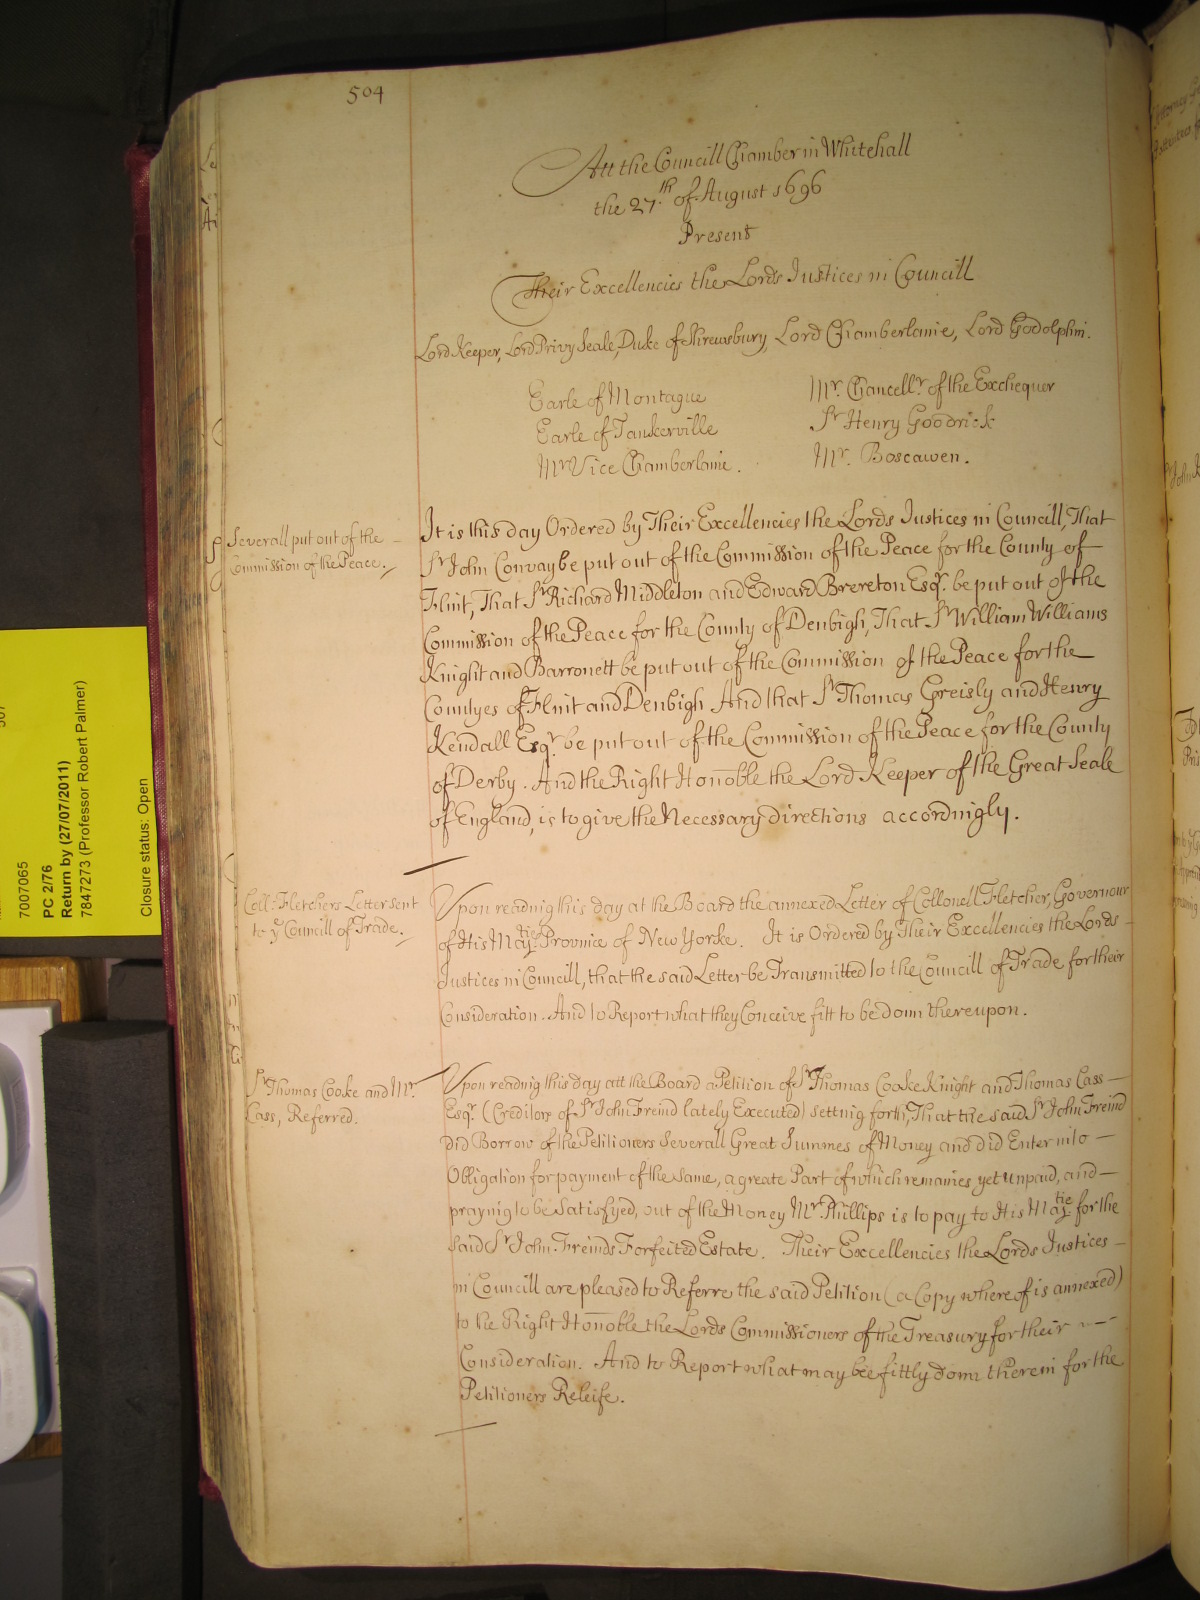 504
Att the Councill Chamber in Whitehall
the 27.th of August 1696
Present
Their Excellencies the Lords Justices in Councill
Lord Keeper, Lord Privy Seale, Duke of Shrewsbury, Lord Chamberlaine, Lord Godolphin.
Earle of Montague
Earle of Tankerville
Mr Vice Chamberlaine.
Mr. Chancellr. of the Exchequer
Sr Henry Goodrick
Mr. Boscawen.
Severall put out of the
Commission of the Peace.
It is this day Ordered by Their Excellencies the Lords Justices in Councill, That
Sr John Convay be put out of the Commission of the Peace for the County of
Flint, That Sr Richard Middleton and Edward Brereton Esqr. be put out of the
Commission of the Peace for the County of Denbigh, That Sr William Williams
Knight and Barronett be put out of the Commission of the Peace for the
Countyes of Flint and Denbigh And that Sr Thomas Greisly and Henry
Kendall Esqr. be put out of the Commission of the Peace for the County
of Derby. And the Right Honoble the Lord Keeper of the Great Seale
of England, is to give the Necessary directions accordingly.
Coll: Fletchers Letter sent
to ye Councill of Trade.
Upon reading this day at the Board the annexed Letter of Collonell Fletcher, Governour
of His Matie's Province of New Yorke. It is Ordered by Their Excellencies the Lords
Justices in Councill, that the said Letter be Transmitted to the Councill of Trade for their
Consideration. And to Report what they Conceive fitt to be donn thereupon.
Sr Thomas Cooke and Mr.
Cass, Referred.
Upon reading this day att the Board a Petition of Sr Thomas Cooke Knight and Thomas Cass
Esqr. (Creditors of Sr John Freind lately Executed) setting forth, That the said Sr John Freind
did Borrow of the Petitioners Severall Great Summes of Money and did Enter into
Obligation for payment of the same, a greate Part of which remaines yet unpaid, and
praying to be Satisfyed, out of the Money Mr. Phillips is to pay to His Matie for the
said Sr John Freinds Forfeited Estate. Their Excellencies the Lords Justices
in Councill are pleased to Referre the said Petition (a Copy whereof is annexed)
to the Right Honoble the Lords Commissioners of the Treasury for their
Consideration. And to Report what may bee fittly donn therein for the
Petitioners Releife.
7007065
PC 2/76
Return by (27/07/2011)
7847273 (Professor Robert Palmer)
Closure status: Open